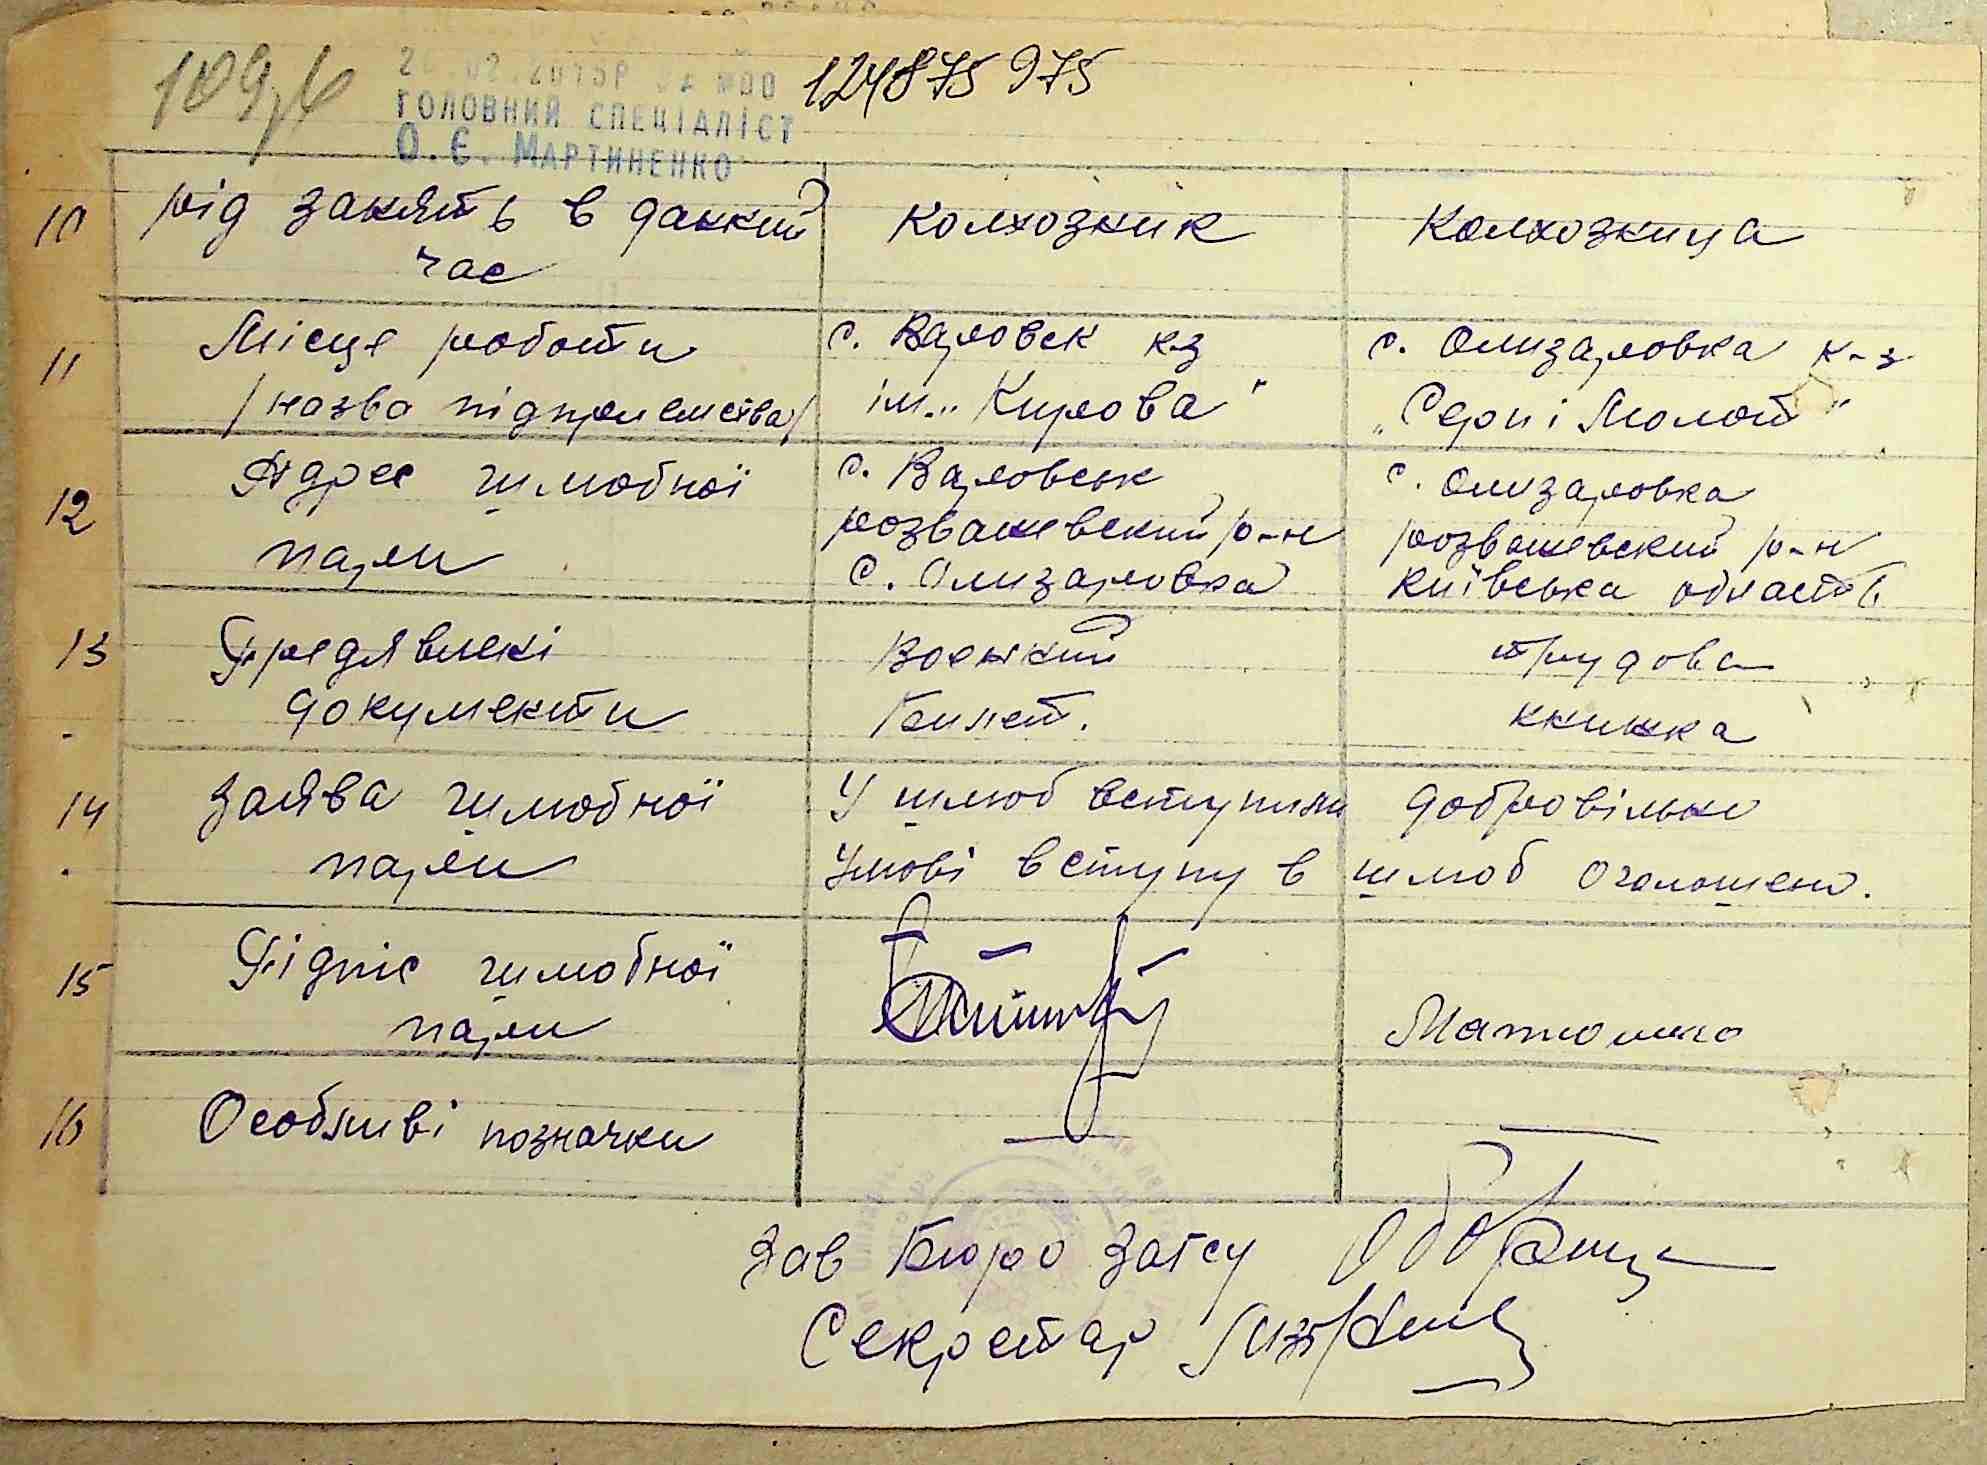 109
124875 975
ГОЛОВНИЙ СПЕЦІАЛІСТ
О.Є. МАРТИНЕНКО
10 рід занять в данний час Колхозник Колхозница
11 Місце роботи
/назва підприємства/
с. Варовск к-з
ім. „Кирова"
с. Олизаровка к-з
„Серп і Молот"
12 Адрес шлюбної
пари
с. Варовськ
розважевский р-н
с. Олизаровка
с. Олизаровка
розважевский р-н
Київська область
13 Предявлені
документи
Воєнний
Билет.
трудова
книжка
14 Заява шлюбної
пари
У шлюб вступили добровільно
Умові вступу в шлюб оголошено.
15 Підпис шлюбної
пари
Матюшко
16 Особливі позначки — —
Зав Бюро Загсу
Секретар